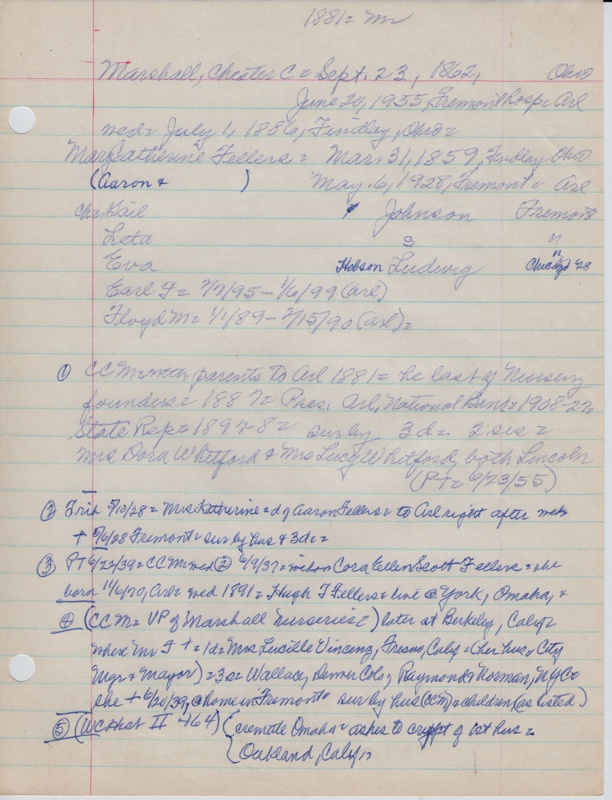 1881= m
Marshall, Chester C = Sept. 23, 1862, Ohio
June 20, 1955, Fremont Hosp = Arl
wed = July 1, 1886, Findlay, Ohio =
Mary Catherine Fellers = Mar. 31, 1859, Findlay Ohio
(Aaron + ) May. 6, 1928, Fremont = Arl
Ch: Gail Johnson Fremont
Leta s "
Eva Hobson Ludwig " Chicago '28
Earl F = 7/7/95 - 1/6/99 (arl)
Floyd M = 1/1/89 - 2/15/90 (arl) =
① CCM = with parents to Arl 1881 = he last of Nursery
founders = 1887 = Pres. Arl. National Bank = 1908-26
State Rep = 1897-8 = sur by 3 d = 2 sis =
Mrs Dora Whitford & Mrs Lucy Whitford, both Lincoln
(PT = 6/23/55)
② Trib 5/10/28 = Mrs Katherine = d of Aaron Fellers = to Arl right after wed =
+ 5/6/28 Fremont = sur by hus & 3 ds =
③ PT 6/22/39 = CCM wed ② 6/9/37 = widow Cora Ellen Scott Fellers = she
born 11/6/70, Arl = wed 1891 = Hugh T Fellers = live @ York, Omaha, =
④ (CCM = VP of Marshall Nurseries =) later at Berkeley, Calif =
where Mr F + = 1d = Mrs Lucille Vincenz, Fresno, Calif = (her hus = City
Mgr & Mayor) = 3 s = Wallace, Denver Colo, Raymond & Norman, NYC =
she + 6/20/39, @ home in Fremont = sur by hus (CCM) = children (as listed)
⑤ (WCHist II 464) { cremate Omaha = ashes to crypt of 1st hus =
{ Oakland, Calif =